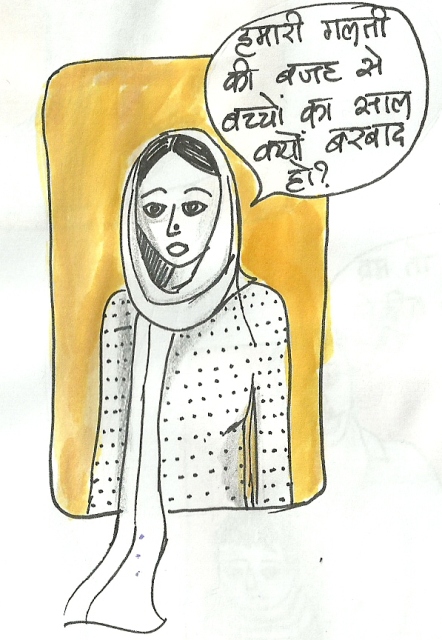 हमारी गलती
की वजह से
बच्चों का साल
क्यों बरबाद
हो?